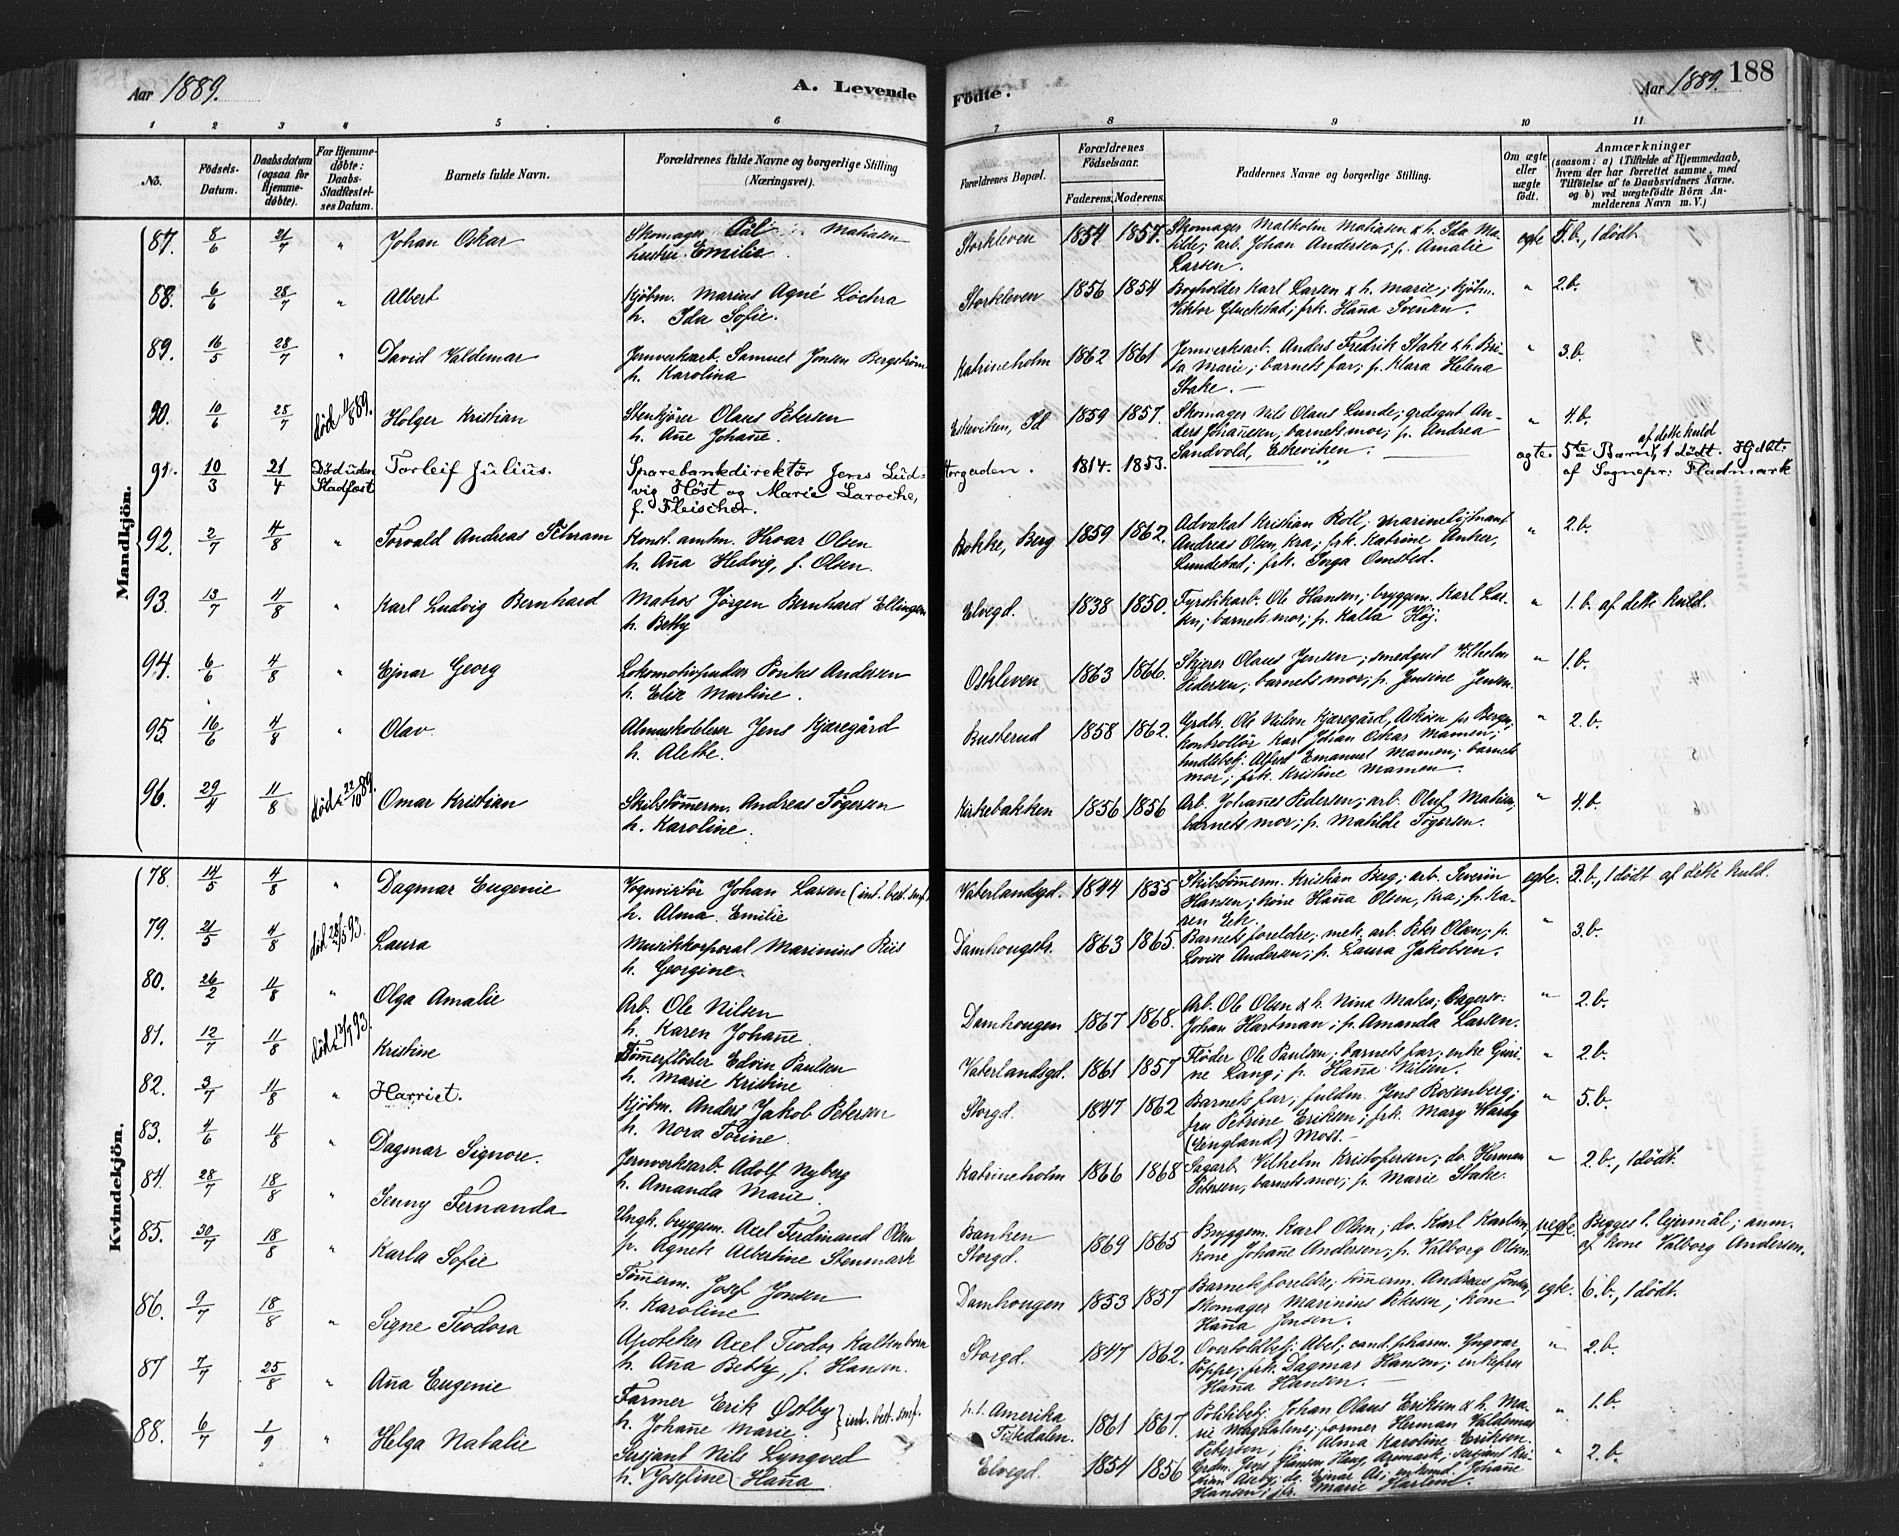 Aar 1889.
A. Levende Födte.
Aar 1889. 188
1 2 3 4 5 6 7 8 9 10 11
No.
Födsels-Datum.
Daabsdatum (ogsaa for Hjemme-döbte).
For Hjemme-döbte: Daabs-Stadfæstel-ses Datum.
Barnets fulde Navn.
Forældrenes fulde Navne og borgerlige Stilling (Næringsvei).
Forældrenes Bopæl.
Forældrenes Födselsaar.
Faderens. Moderens.
Faddernes Navne og borgerlige Stilling.
Om ægte eller uægte födt.
Anmærkninger
(saasom: a) i Tilfælde af Hjemmedaab, hvem der har forrettet samme, med Tilföielse af to Daabsvidners Navne. og b) ved uægtefödte Börn An-melderens Navn m. V.)
Mandkjön.
87. 8/6 21/7 " Johan Oskar
Skomager Pål Matiasen
hustru Emilie
Storkleven 1854 1857.
Skomager Malkolm Matiasen & h. Ida Ma-
tilde; arb. Johan Andersen; p. Amalie
Larsen.
egte 5.b., 1 dödt.
88. 6/6 28/7 " Albert
Kjöbm. Marius Agné Löchra
h. Ida Sofie.
Storkleven 1856 1854
Bogholder Karl Larsen & h. Marie; kjöbm.
Viktor Gluckstad; frk. Hanna Svensen.
" 2.b.
89. 16/5 28/7 " David Valdemar
Jernverksarb. Samuel Jonsen Bergström
h. Karolina
Katrineholm 1862 1861
Jernverksarb. Anders Fredrik Stake & h. Bri-
ta Marie; barnets far; p. Klara Helena
Stake.
" 3.b.
90. 10/6 28/7 död 11/8 89. Holger Kristian
Stenkjörer Olaus Petersen
h. Ane Johanne.
Eskeviken, Id 1859 1857.
Skomager Nils Olaus Lunde; grdsgut An-
ders Johannesen; barnets mor; p. Andrea
Sandvold, Eskeviken.
" 4.b.
91. 10/3 21/4 Död uden Stadfæst Torleif Julius.
Sparebankdirektör Jens Lud-
vig Höst og Marie Laroche,
f. Fleischer.
Storgaden. 1814. 1853.
egte. 5te Barn af dette kuld, 1 dödt. Hjdbt.
af Sognepr: Fladmark
92. 2/7 4/8 " Torvald Andreas Schram
Konst. amtm. Hroar Olsen
h. Anna Hedvig, f. Olsen.
Bakke, Berg 1859 1862.
Advokat Kristian Roll; marinelöjtnant
Andreas Olsen, Kra; frk. Katrine Anker,
Lundestad; frk. Inga Omsted.
" 2.b.
93. 13/7 4/8 " Karl Ludvig Bernhard
Matros Jörgen Bernhard Ellingsen
h. Betty
Elvegd. 1838 1850.
Fyrstikarb. Ole Hansen; bryggem. Karl Lar-
sen; barnets mor; p. Kalla Höj.
" 1.b. af dette kuld.
94. 6/6 4/8 " Ejnar Georg
Lokomotivpudser Pontus Andersen
h. Elise Martine.
Oskleven 1863 1866.
Skjærer Olaus Jensen; smedgut Vilhelm
Pedersen; barnets mor; p. Jensine Jensen.
" 1.b.
95. 16/6 4/8 " Olav
Almueskolelærer Jens Kjæregård
h. Alethe.
Busterud 1858 1862.
Grdbr. Ole Nilsen Kjæregård, Asköen pr. Bergen;
kontrollör Karl Johan Oskar Mamen;
hndlsbetj. Alfred Emanuel Mamen; barnets
mor; frk. Kristine Mamen.
" 2.b.
96. 29/4 11/8 död 22/10 89. Omar Kristian
Skibstömmerm. Andreas Tögersen
h. Karoline.
Kirkebakken 1856 1856
Arb. Johannes Pedersen; arb. Oluf Matisen;
barnets mor; p. Matilde Tögersen.
" 4.b.
Kvindekjön.
78. 14/5 4/8 " Dagmar Eugenie
Vognvisitör Johan Larsen (int. best. smf.)
h. Alma Emilie
Vaterlandsgd. 1844 1855
Skibstömmerm. Kristian Berg; arb. Severin
Hansen; kone Hanna Olsen, Kra; p. Ka-
ren Eek.
egte. 2.b., 1 dödt af dette kuld.
79. 21/5 4/8 död 28/5 93. Laura
Musikkorporal Marinius Riis
h. Georgine.
Damhougstr. 1863 1865.
Barnets foreldre; mek. arb. Peter Olsen; p.
Lovise Andersen; p. Laura Jakobsen.
" 3.b.
80. 26/2 11/8 " Olga Amalie
Arb. Ole Nilsen
h. Karen Johanne.
Damhougen 1867 1868.
Arb. Ole Olsen & h. Nina Matea; Bagersv.
Johan Hartman; p. Amanda Larsen.
" 2.b.
81. 12/7 11/8 Kristine
Tömmerflöder Edvin Paulsen
h. Marie Kristine
Vaterlandsgd. 1861 1857
Flöder Ole Paulsen; barnets far; enke Guri-
ne Lang; p. Hanna Nilsen.
" 2.b.
82. 3/7 11/8 " Harriet.
Kjöbm. Anders Jakob Petersen
h. Nora Torine.
Storgd. 1847 1862
Barnets far; fuldm. Jens Rosenberg;
fru Petrine Eriksen; frk. Mary Hardy
(England) Moss.
" 5.b.
83. 4/6 11/8 " Dagmar Signore.
Jernverksarb. Adolf Nyberg
h. Amanda Marie.
Katrineholm 1866 1868
Sagarb. Vilhelm Kristofersen; do. Herman
Petersen; barnets mor; p. Marie Stake.
" 2.b., 1 dödt.
84. 28/7 18/8 " Jenny Fernanda
Ungk. bryggem. Axel Ferdinand Olsen
p. Agnete Albertine Stenmark
Banken
Storgd. 1869 1865
Bryggem. Karl Olsen; do. Karl Karlsen;
kone Johanne Andersen; p. Valborg Olsen.
uegte. Begges 1. lejermål; anm.
af kone Valborg Andersen.
85. 30/7 18/8 " Karla Sofie
Tömmerm. Josef Jonsen
h. Karoline
Damhougen 1853 1857
Barnets foreldre; tömmerm. Andreas Jonsen;
skomager Marinius Petersen; kone
Hanna Jonsen.
egte. 6.b., 1 dödt.
86. 9/7 18/8 " Signe Teodora
Apoteker Axel Teodor Kaltenborn
h. Anna Betsy, f. Hansen.
Storgd. 1847 1862.
Overtoldbetj. Abel; cand. pharm. Yngvar
Poppe; frk. Dagmar Hansen; enkefru
Hanna Hansen.
" 2.b.
87 7/7 25/8 " Anna Eugenie
Farmer Erik Östby
h. Johanne Marie. } int. best. smf.
p.t. Amerika
Tistedalen. 1861 1867.
Politibetj. Johan Olaus Eriksen & h. Ma-
rie Magdalene; farmer Herman Valdemar
Petersen; p. Alma Karoline Eriksen.
" 1.b.
88. 6/7 1/9 " Helga Natalie
Sersjant Nils Lyngved
h. Josefine (Hanna
Elvegd. 1854 1856
Grdm. Jens Hansen Haug, Aremark; sersjant Kri-
Hansen; fr. Marie Harlem.
" 2.b.